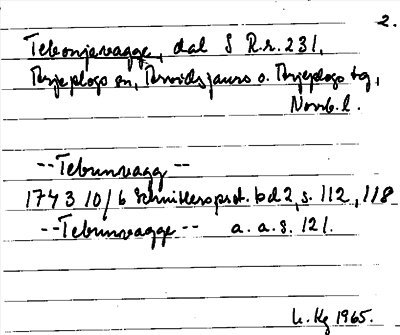 2.
Tebonjavagge, dal S R.r. 231,
Arjeplogs sn, Arvidsjaurs o. Arjeplogs tg,
Norrb. l.
-- Tebunvagg --
1743 10/6 Schnitlersprot. bd 2, s. 112, 118
-- Tebunvagge -- a. a. s. 121.
1965.